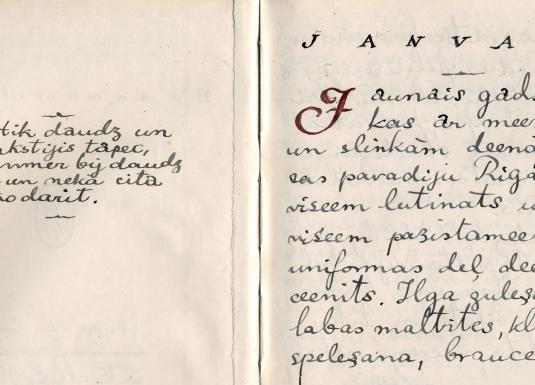 tik daudz un
akstijis tapec,
nmēr bij daudz
un neka cita
ko darit.
JANVA
Jaunais gads
kas ar meer
un slinkām deenā
ças pavadiju Rīgā
viseem lutinats u
viseem pazistamee
uniformas deļ dee
ceenits. Ilga guleşa
labas maltites, kl
speleşana, brauce